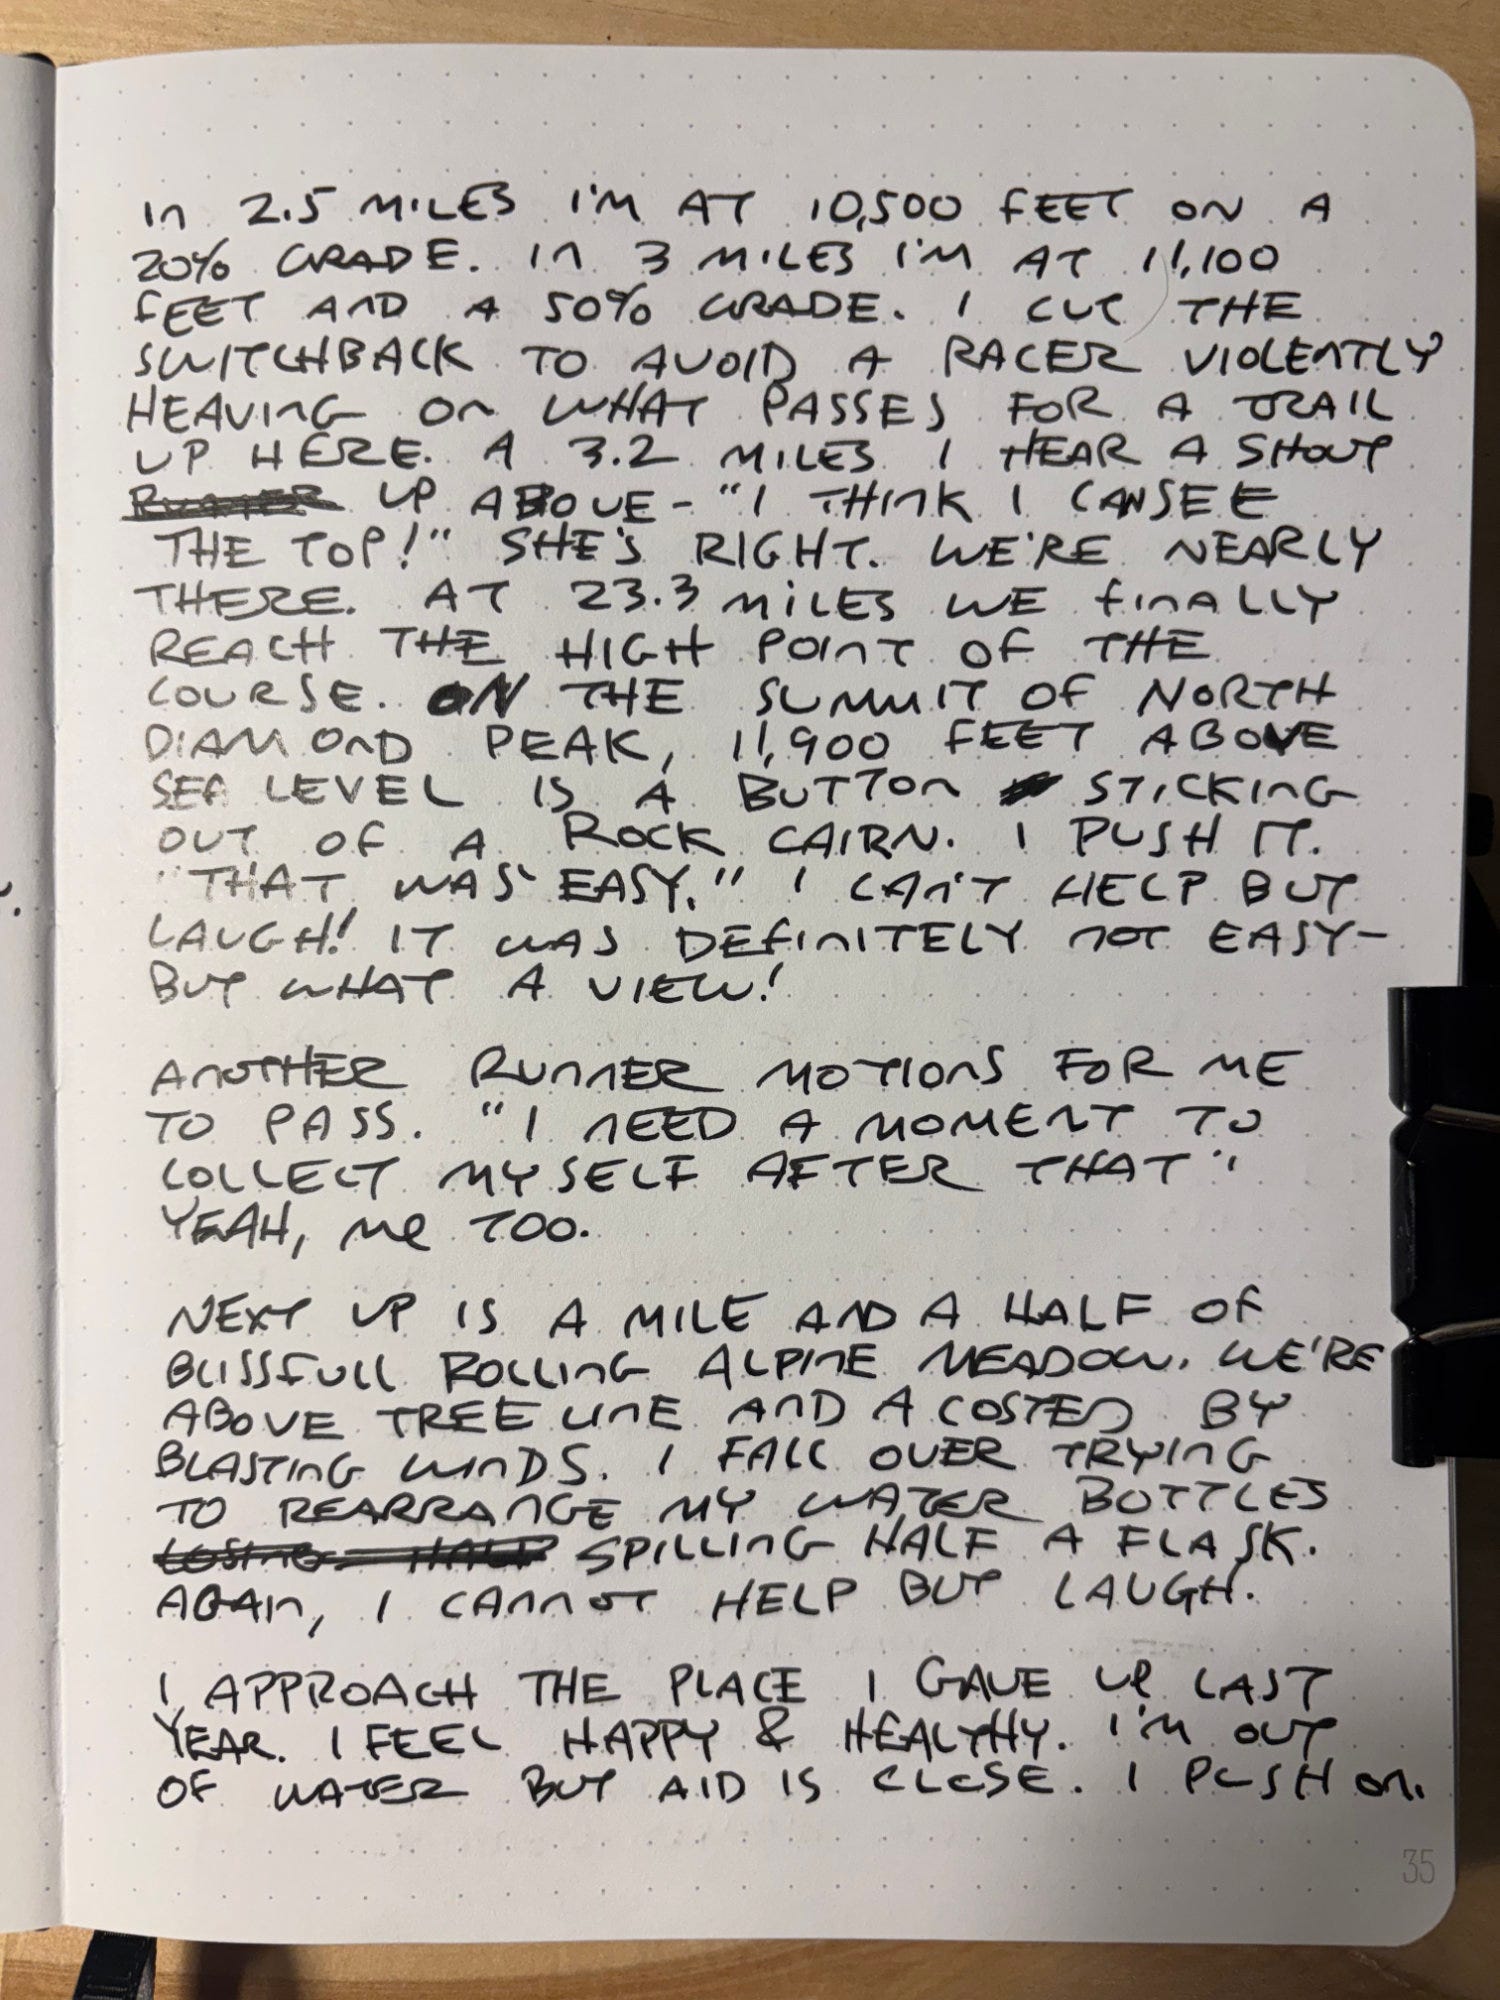 In 2.5 MILES I'M AT 10,500 FEET ON A
20% GRADE. In 3 MILES I'M AT 11,100
FEET AND A 50% GRADE. I CUT THE
SWITCHBACK TO AVOID A RACER VIOLENTLY
HEAVING ON WHAT PASSES FOR A TRAIL
UP HERE. A 3.2 MILES I HEAR A SHOUT
UP ABOVE - "I THINK I CAN SEE
THE TOP!" SHE'S RIGHT. WE'RE NEARLY
THERE. AT 23.3 MILES WE finALLY
REACH THE HIGH POINT OF THE
COURSE. ON THE SUMMIT OF NORTH
DIAMOND PEAK, 11,900 FEET ABOVE
SEA LEVEL IS A BUTTON STICKING
OUT OF A ROCK CAIRN. I PUSH IT.
"THAT WAS EASY." I CAN'T HELP BUT
LAUGH! IT WAS DEFINITELY NOT EASY-
BUT WHAT A VIEW!
ANOTHER RUNNER MOTIONS FOR ME
TO PASS. "I NEED A MOMENT TO
COLLECT MYSELF AFTER THAT"
YEAH, Me TOO.
NEXT UP IS A MILE AND A HALF OF
BLISSFULL ROLLING ALPINE MEADOW. WE'RE
ABOVE TREE LINE AND ACOSTED BY
BLASTING WINDS. I FALL OVER TRYING
TO REARRANGE MY WATER BOTTLES
LOSING HALF SPILLING HALF A FLASK.
AGAIN, I CANNOT HELP BUT LAUGH.
I APPROACH THE PLACE I GAVE UP LAST
YEAR. I FEEL HAPPY & HEALTHY. I'M OUT
OF WATER BUT AID IS CLOSE. I PUSH ON.
35